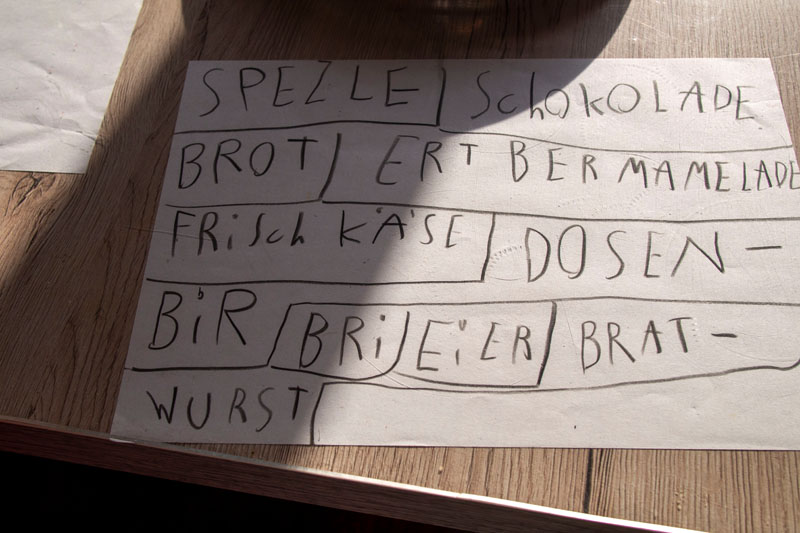 SPEZLE SchOKOLADE
BROT ERTBERMAMELADE
FRiSch KÄSE DOSEN-
BiR BRi EiER BRAT-
WURST